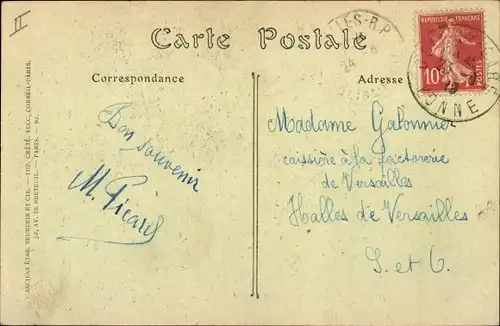 II
Carte Postale
Correspondance
Adresse
RÉPUBLIQUE FRANÇAISE
10c
POSTES
YONNE
LES-R.P
24
Bon souvenir
M. Picard
Madame Galonnier
caissière à la factorerie
de Versailles
Halles de Versailles
S. et O.
ANCIENS ÉTAB. NEURDEIN ET CIE. — IMP. CRÉTÉ, SUCC., CORBEIL-PARIS.
52, AV. DE BRETEUIL. — PARIS. —